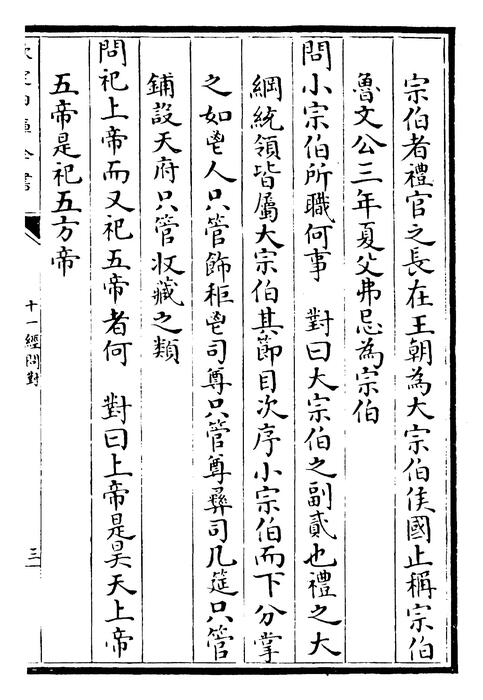 宗伯者禮官之長在王朝為大宗伯侯國止稱宗伯
魯文公三年夏父弗忌為宗伯
問小宗伯所職何事　對曰大宗伯之副貳也禮之大
綱統領皆屬大宗伯其節目次序小宗伯而下分掌
之如鬯人只管飾秬鬯司尊只管尊彛司几筵只管
鋪設天府只管収藏之類
問祀上帝而又祀五帝者何　對曰上帝是昊天上帝
五帝是祀五方帝
十一經問對
三